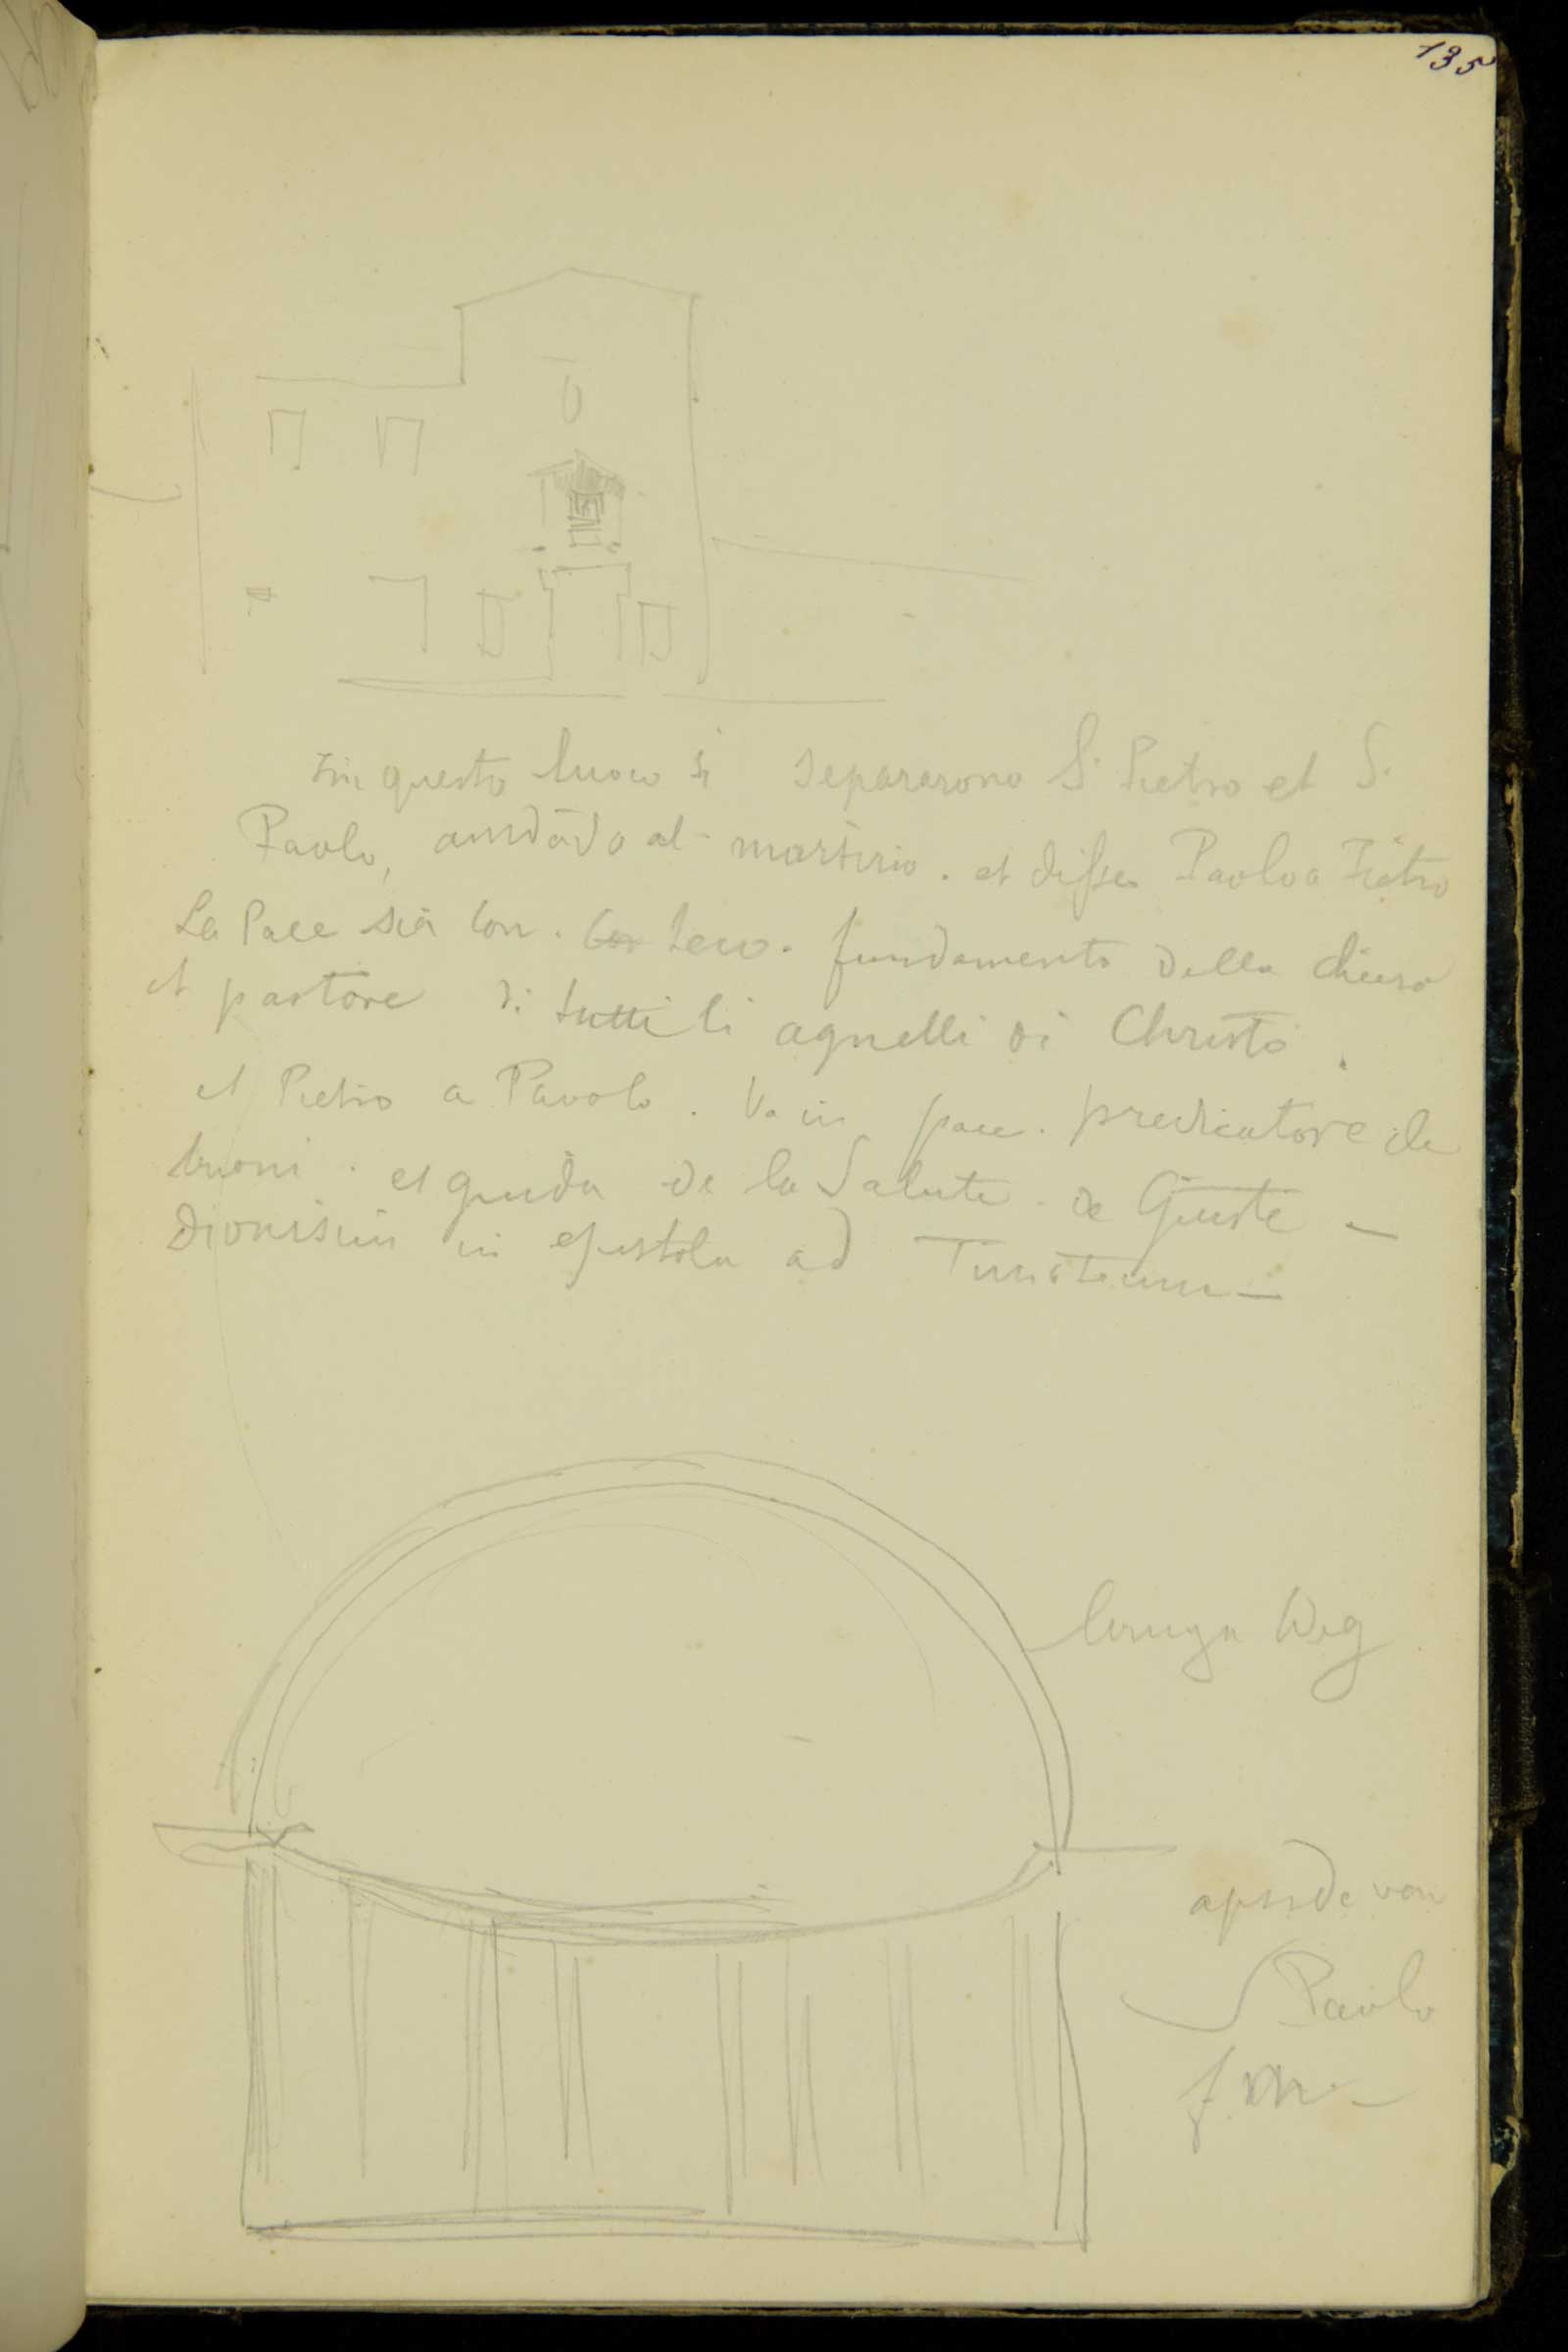 135
in questo luoco si separarono S. Pietro et S.
Paolo, andādo al martirio. et disse Paolo a Pietro
La Pace sia con. teco. fundamento della chiesa
et pastore di tutti li agnelli di Christo.
et Pietro a Pavolo. Va in pace. predicatore de
buoni. et guida de la Salute de Giusti —
Dionisius in epistola ad Timoteum —
Weg
apside von
S Paolo
f. m. —